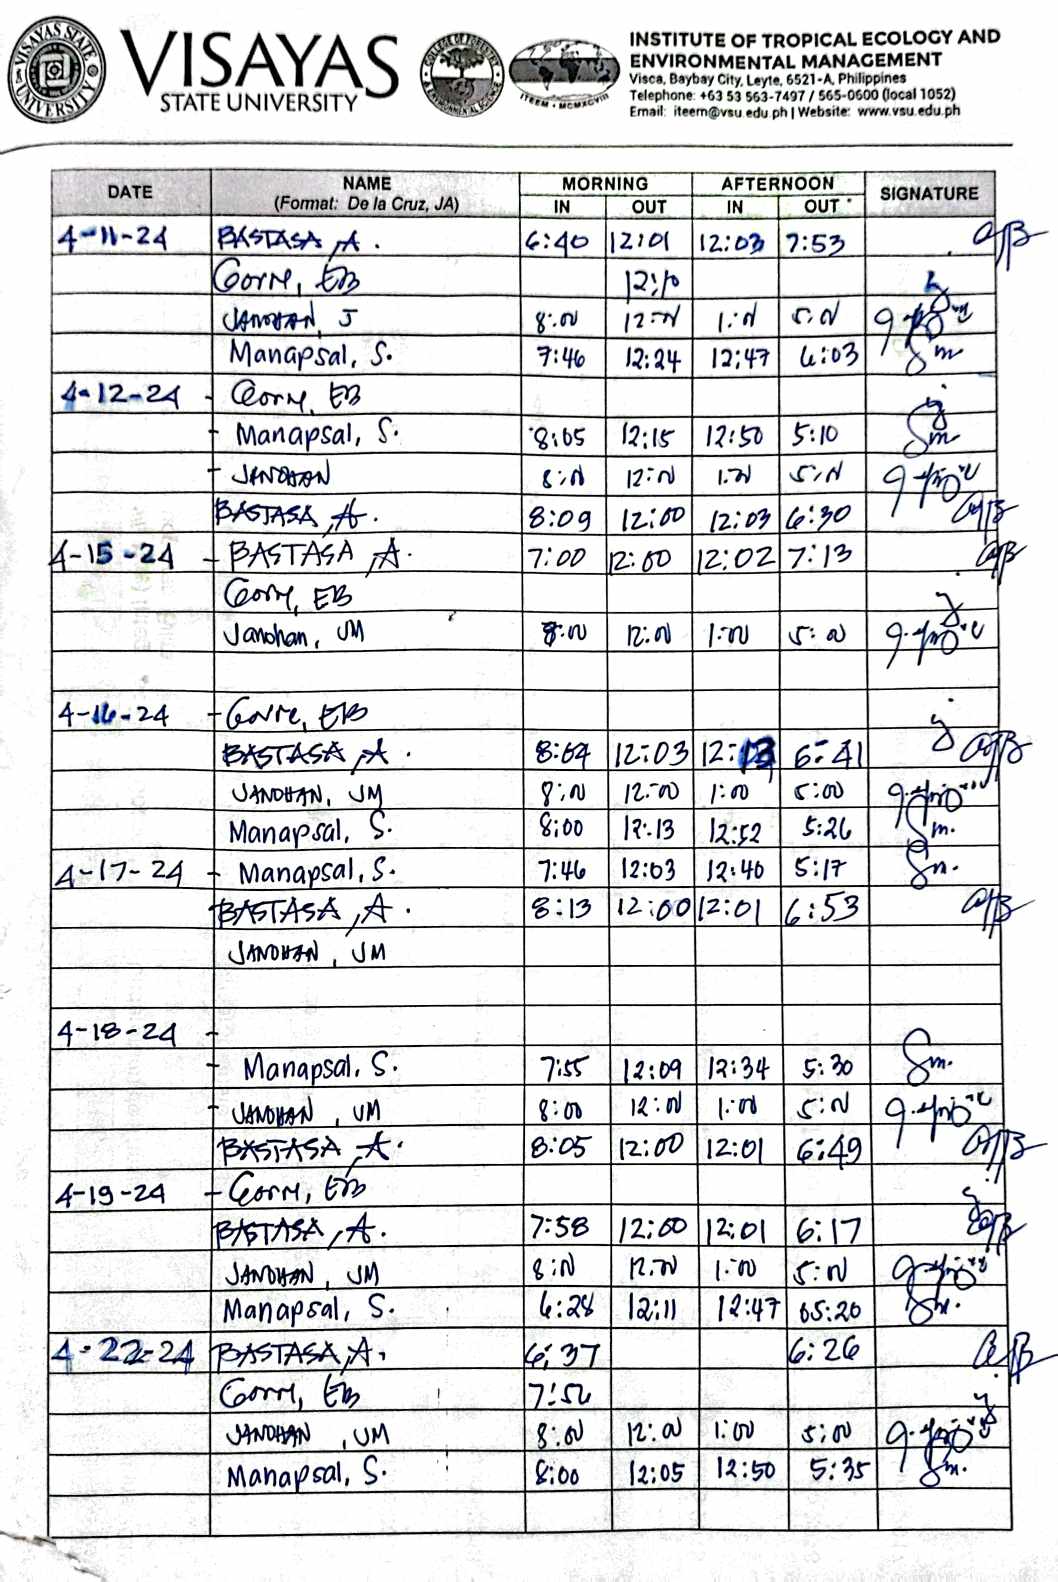 VISAYAS
STATE UNIVERSITY
INSTITUTE OF TROPICAL ECOLOGY AND
ENVIRONMENTAL MANAGEMENT
Visca, Baybay City, Leyte, 6521-A, Philippines
Telephone: +63 53 563-7497 / 565-0600 (local 1052)
Email: iteem@vsu.edu.ph | Website: www.vsu.edu.ph
DATE NAME (Format: De la Cruz, JA) MORNING AFTERNOON SIGNATURE
IN OUT IN OUT
4-11-24 BASTASA, A. 6:40 12:01 12:03 7:53
Gorre, EB 12:10
JANDHAN, J 8:00 12:00 1:00 5:00
Manapsal, S. 7:46 12:24 12:47 6:03
4-12-24 - Gorre, EB
- Manapsal, S. 8:05 12:15 12:50 5:10
- JANDHAN 8:00 12:00 1:00 5:00
BASTASA, A. 8:09 12:00 12:03 6:30
4-15-24 - BASTASA, A. 7:00 12:00 12:02 7:13
Gorre, EB
Jandhan, JM 8:00 12:00 1:00 5:00
4-16-24 - Gorre, EB
BASTASA, A. 8:04 12:03 12:13 6:41
JANDHAN, JM 8:00 12:00 1:00 5:00
Manapsal, S. 8:00 12:13 12:52 5:26
4-17-24 - Manapsal, S. 7:46 12:03 12:40 5:17
BASTASA, A. 8:13 12:00 12:01 6:53
JANDHAN, JM
4-18-24 -
- Manapsal, S. 7:55 12:09 12:34 5:30
- JANDHAN, JM 8:00 12:00 1:00 5:00
BASTASA, A. 8:05 12:00 12:01 6:49
4-19-24 - Gorre, EB
BASTASA, A. 7:58 12:00 12:01 6:17
JANDHAN, JM 8:00 12:00 1:00 5:00
Manapsal, S. 6:28 12:11 12:47 05:20
4-22-24 BASTASA, A. 6:37 6:26
Gorre, EB 7:56
JANDHAN, JM 8:00 12:00 1:00 5:00
Manapsal, S. 8:00 12:05 12:50 5:35